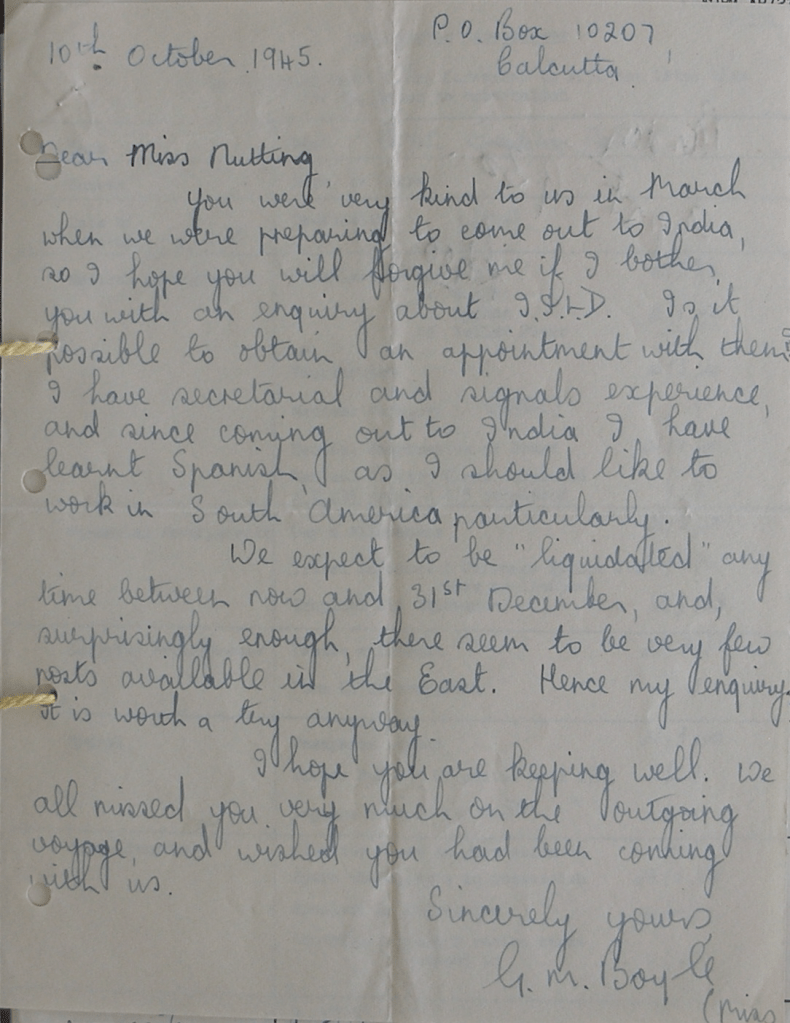 10th October 1945.
P.O. Box 10207
Calcutta.
Dear Miss Nutting
You were very kind to us in March
when we were preparing to come out to India,
so I hope you will forgive me if I bother
you with an enquiry about I.S.L.D. Is it
possible to obtain an appointment with them?
I have secretarial and signals experience,
and since coming out to India I have
learnt Spanish, as I should like to
work in South America particularly.
We expect to be "liquidated" any
time between now and 31st December, and,
surprisingly enough, there seem to be very few
posts available in the East. Hence my enquiry.
It is worth a try anyway.
I hope you are keeping well. We
all missed you very much on the outgoing
voyage, and wished you had been coming
with us.
Sincerely yours,
G. M. Boyle
(Miss